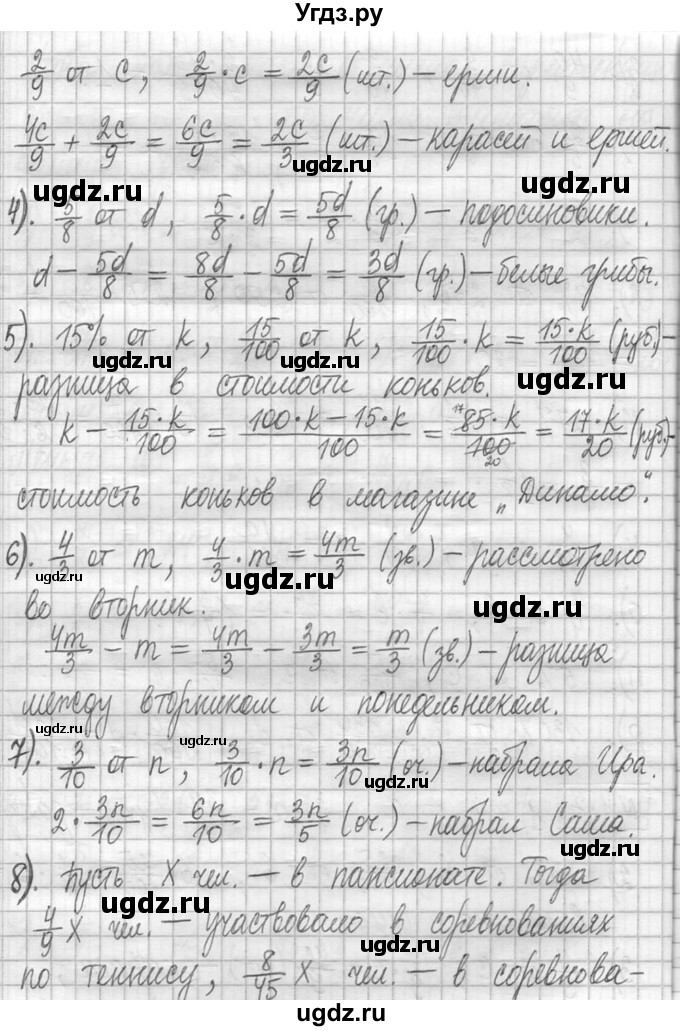 Угдз.ру
2/9 от c, 2/9 · c = 2c/9 (шт.) – ерши.
4c/9 + 2c/9 = 6c/9 = 2c/3 (шт.) – карасей и ершей.
ugdz.ru ugdz.ru
4). 5/8 от d, 5/8 · d = 5d/8 (гр.) – подосиновики.
ugdz.ru
d – 5d/8 = 8d/8 – 5d/8 = 3d/8 (гр.) – белые грибы.
5). 15% от k, 15/100 от k, 15/100 · k = 15·k/100 (руб.) –
ugdz.ru ugdz.ru
разница в стоимости коньков.
ugdz.ru
k – 15·k/100 = 100·k – 15·k/100 = 17 85·k/100 20 = 17·k/20 (руб.) –
стоимость коньков в магазине „Динамо“.
6). 4/3 от m, 4/3 · m = 4m/3 (зв.) – рассмотрено
ugdz.ru ugdz.ru
во вторник.
ugdz.ru
4m/3 – m = 4m/3 – 3m/3 = m/3 (зв.) – разница
между вторником и понедельником.
ugdz.ru ugdz.ru
7). 3/10 от n, 3/10 · n = 3n/10 (оч.) – набрала Ира.
ugdz.ru
2 · 3n/10 = 6n/10 = 3n/5 (оч.) – набрал Саша.
ugdz.ru
8). Пусть x чел. – в пансионате. Тогда
4/9 x чел. – участвовало в соревнованиях
ugdz.ru
по теннису, 8/45 x чел. – в соревнова-
ugdz.ru
ugdz.ru